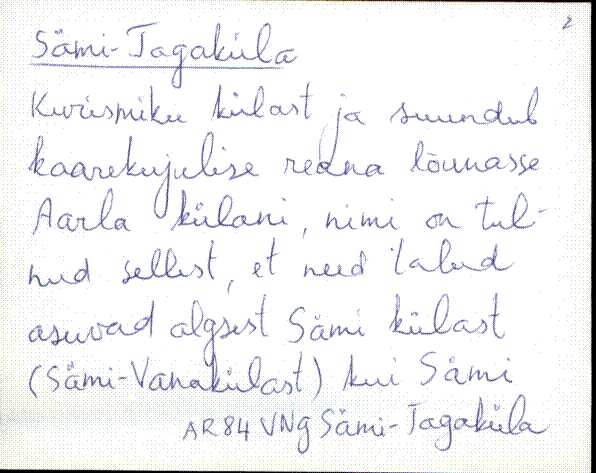 2
Sämi-Tagaküla
Kurismiku külast ja suundub
kaarekujulise reana lõunasse
Aarla külani, nimi on tul-
nud sellest, et need talud
asuvad algsest Sämi külast
(Sämi-Vanakülast) kui Sämi
AR84 VNg Sämi-Tagaküla